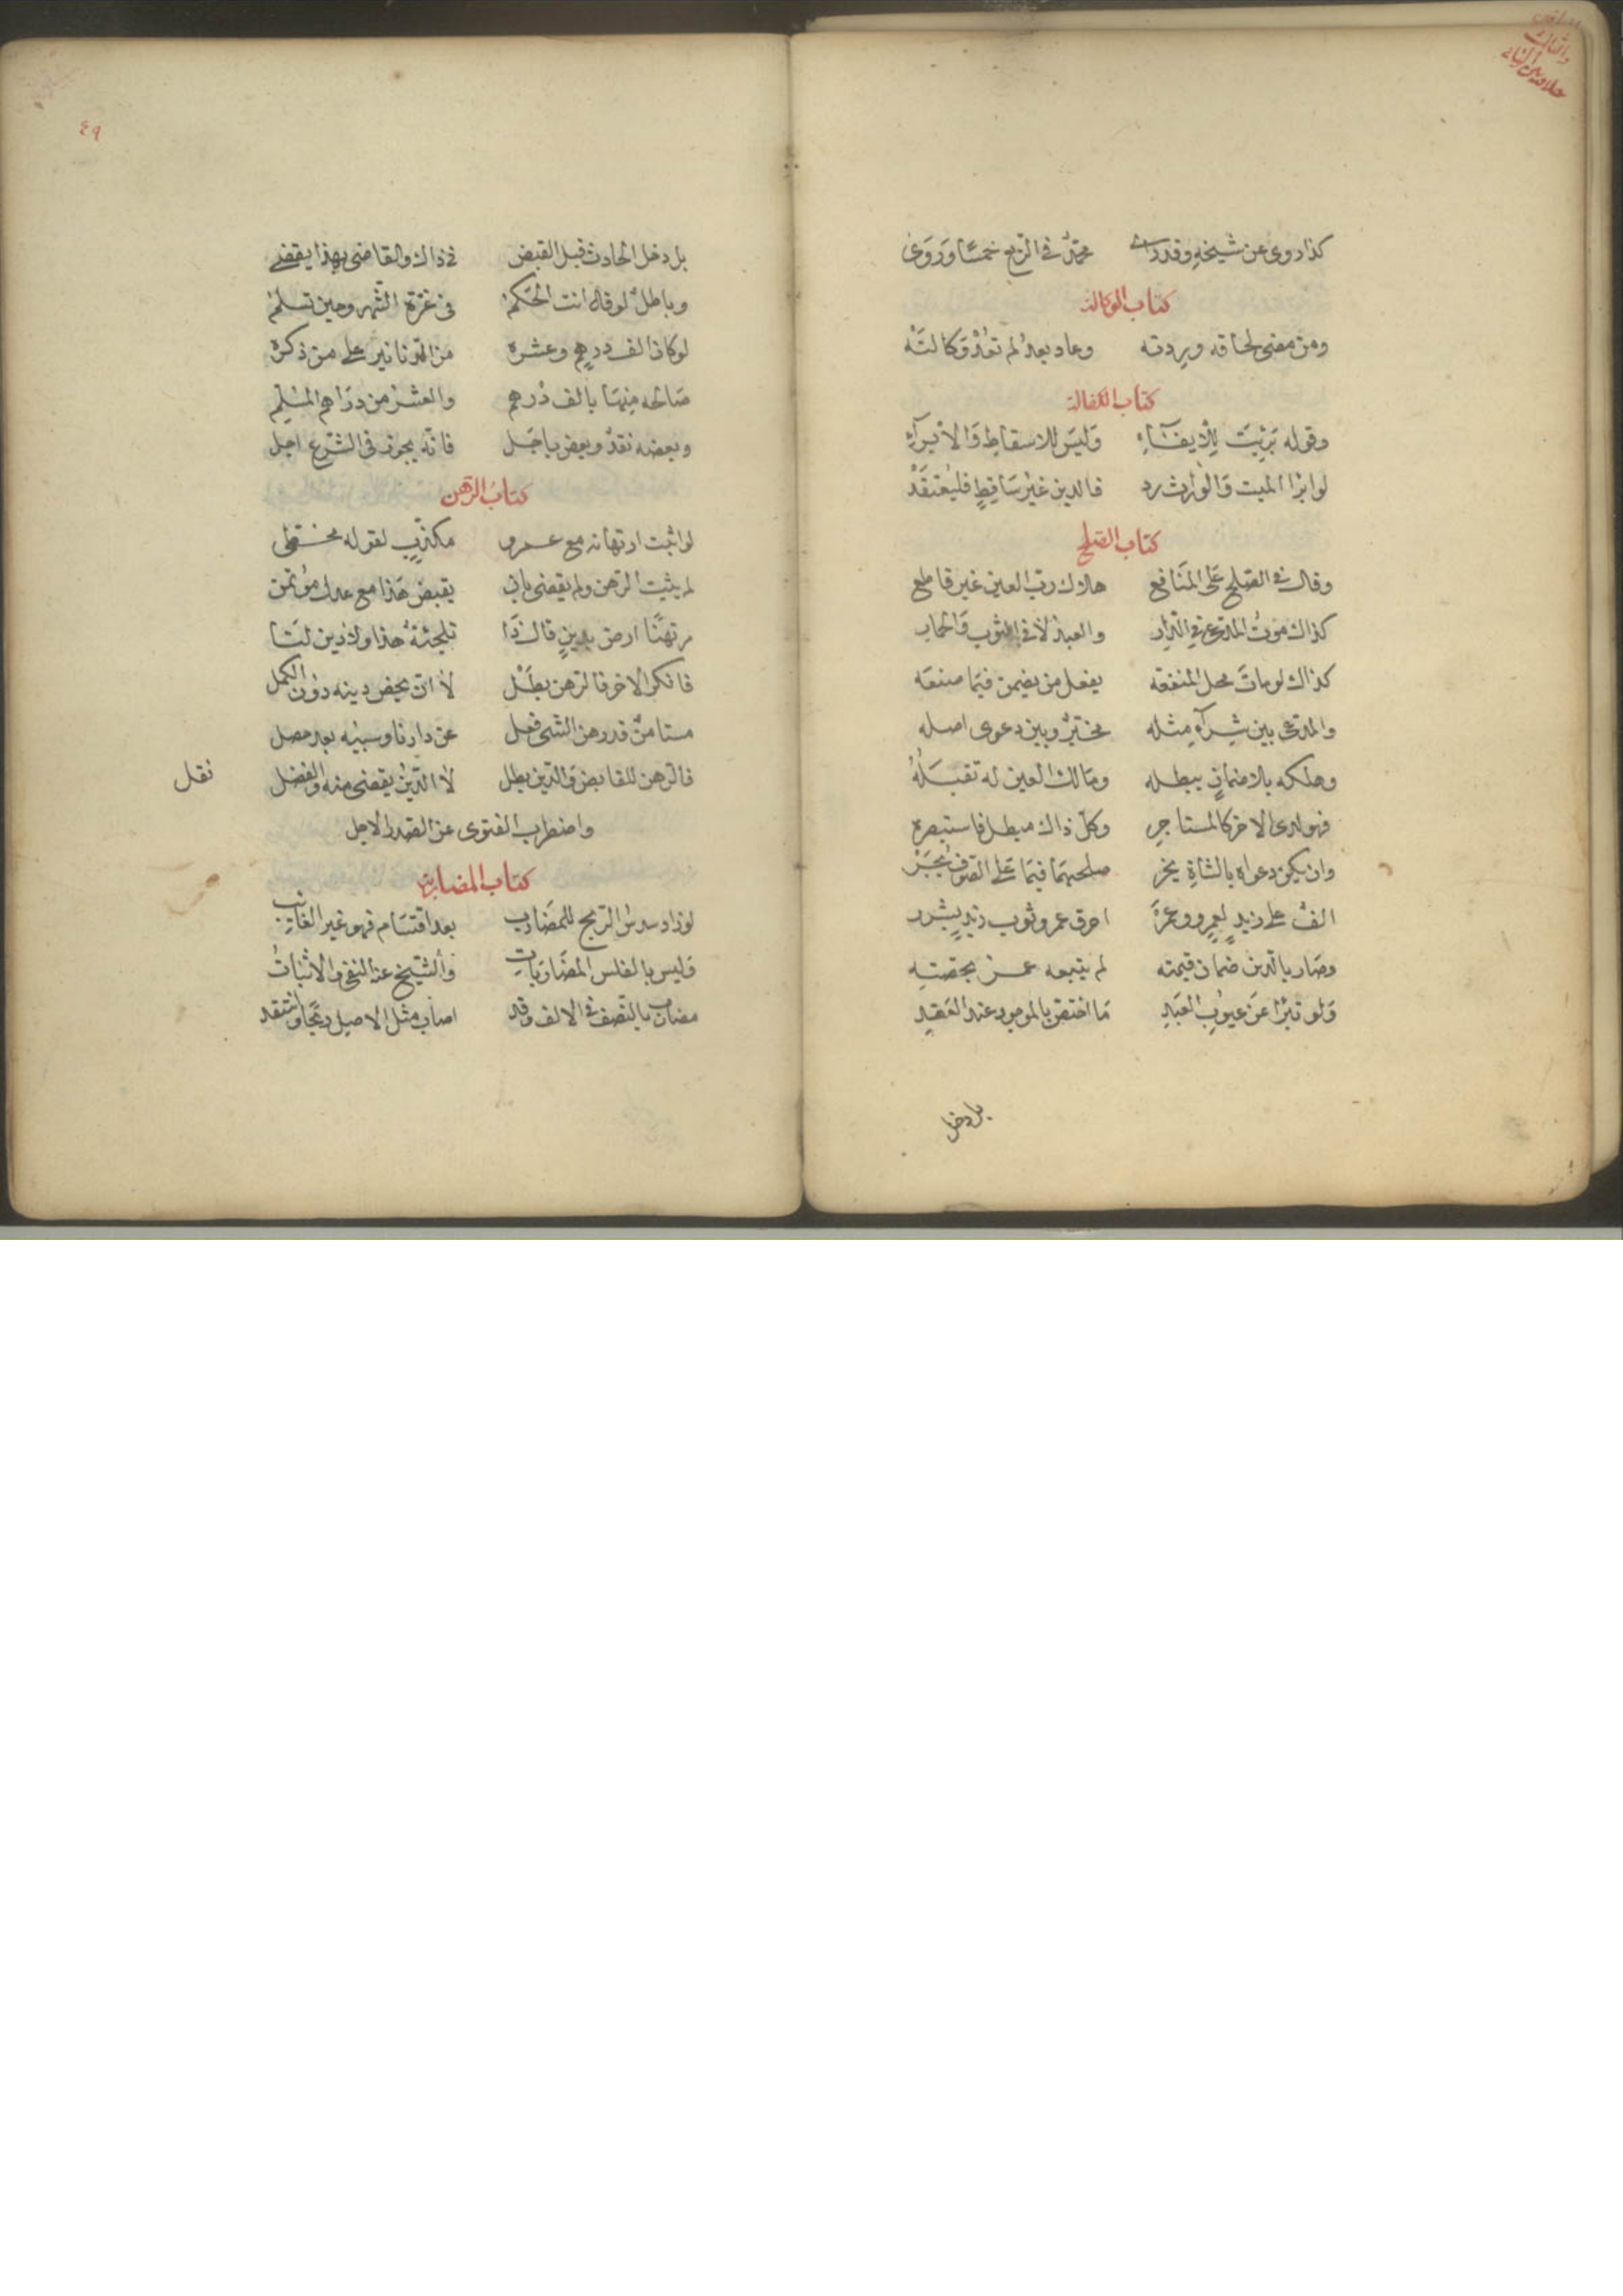 كذا روى عن شيخه وقد محمد في الربع خمسا وروى
كتاب الوكالة
ومن مضى لحاقه وردته وعاد بعد لم تعد وكالته
كتاب الكفالة
وقوله برئت للايفاء وليس للاسقاط والابراء
لو ابرا الميت والوارث رد فالدين غير ساقط فليعتقد
كتاب الصلح
وقال في الصلح على المنافع هلاك رب العين غير قاطع
كذاك موت المدعي في الدار والعبد لا في الثوب و
كذاك لو مات محل المنفعه يفعل من يضمن فيما صنعه
والمدعي بين شراء مثله مخير وبين دعوى اصله
وهلكه بلا ضمان يبطله ومالك العين له تقبله
فهو لدى الاخر كالمستاجر وكل ذاك مبطل فاستبصره
وان يكن دعواه بالشاة يخر صلحهما فيما على الصوف يجز
الف على زيد لعمرو وعمر احرق عمرو ثوب زيد
وصار بالدين ضمان قيمته لم يتبعه عمر بحصته
ولو تبرا عن عيوب العبد ما اختص بالموجود عند العقد
بل دخل
٤٩
بل دخل الحادث قبل القبض في ذاك والقاضي بهذا يقضي
وباطل لو قال انت الحكم في غرة الشهر وحين تسلم
لو كان الف درهم وعشره من الدنانير على من ذكره
صالحه منها بالف درهم والعشر من دراهم المسلم
وبعضه نقد وبعض باجل فانه يجوز في الشرع اجل
كتاب الرهن
لو اثبت ارتهانه مع مكذب لقوله
لم يثبت الرهن ولم يقض بان يقبض هذا مع عدل مؤتمن
مرتهنا ارض بدين قال ذا تلجئة هذا ولا دين لنا
فانكر الاخر فالرهن بطل لا ان يخص دينه دون الكمل
مستامن قد رهن الشئ فعل عن دارنا وسبيه بعد حصل
فالرهن للقابض والدين بطل لا الدين يقضى منه والفضل نقل
واضطرب الفتوى عن الصدر الاجل
كتاب المضاربة
لو زاد سدس الربح للمضارب بعد اقتسام فهو غير الغائب
وليس بالفلس المضاربات والشيخ عنه النفي والاثبات
مضارب بالنصف في الالف وقد اصاب مثل الاصل ربحا وانتقد